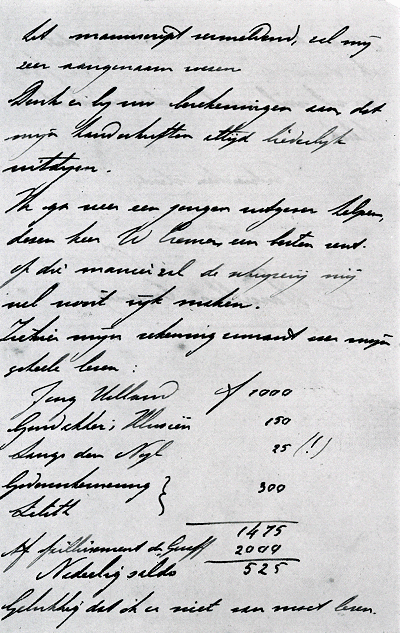 het manuscript vermeldend, zal mij
zeer aangenaam wezen
Denk er bij uw berekeningen aan dat
mijn handschriften altijd liederlijk
uitdijen.
Ik ga weer een jongen uitgever helpen,
dezen keer W Cremer, een besten vent.
op die manier zal de schrijverij mij
wel nooit rijk maken.
Ziehier mijn rekeningcourant over mijn
geheele leven :
Jong Holland ƒ 1000
Goudakker's Illusiën 150
Langs den Nijl 25 (!!)
Godenschemering } 300
Lilith
1475
Af faillissement de Graaff 2000
Nadeelig saldo 525
Gelukkig dat ik er niet van moet leven.